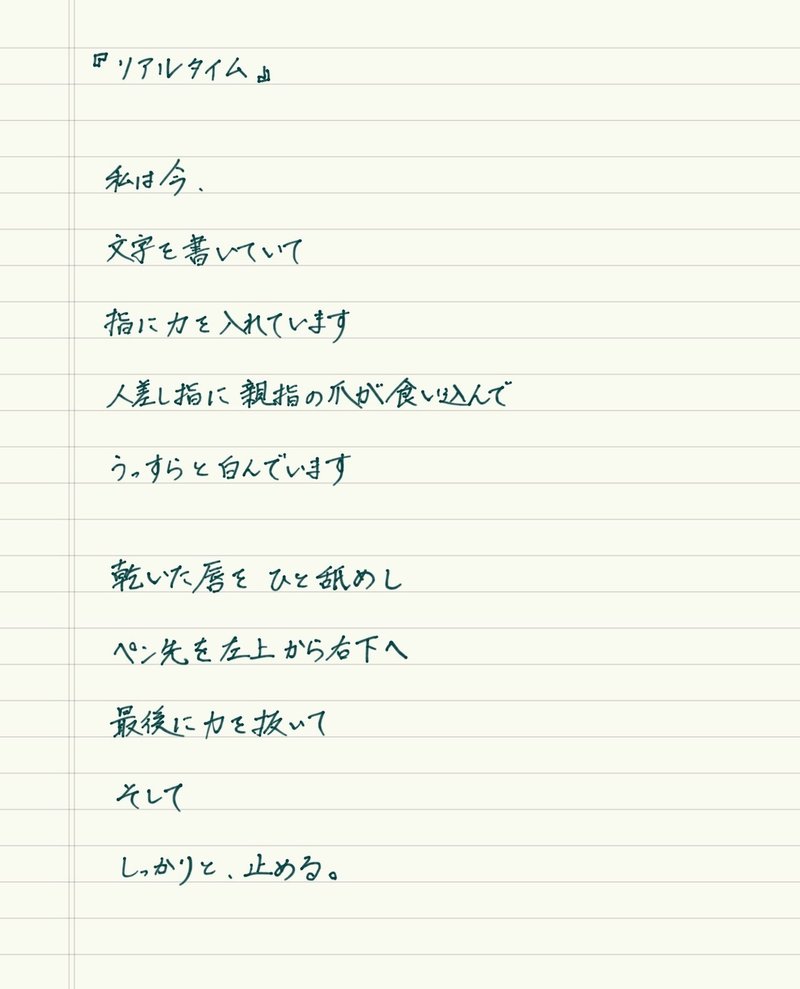 『リアルタイム』
私は今、
文字を書いていて
指に力を入れています
人差し指に親指の爪が食い込んで
うっすらと白んでいます
乾いた唇を ひと舐めし
ペン先を左上から右下へ
最後に力を抜いて
そして
しっかりと、止める。